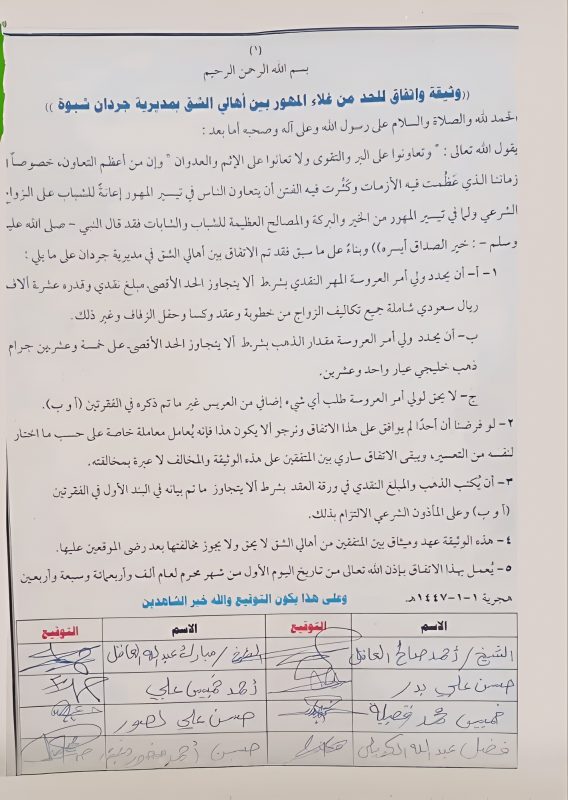 (١)
بسم الله الرحمن الرحيم
((وثيقة واتفاق للحد من غلاء المهور بين أهالي الشق بمديرية جردان شبوة ))
الحمد لله والصلاة والسلام على رسول الله وعلى آله وصحبه أما بعد :
يقول الله تعالى : " وتعاونوا على البر والتقوى ولا تعاونوا على الإثم والعدوان " وإن من أعظم التعاون، خصوصاً
زماننا الذي عَظُمت فيه الأزمات وكَثُرت فيه الفتن أن يتعاون الناس في تيسير المهور إعانةً للشباب على الزواج
الشرعي ولما في تيسير المهور من الخير والبركة والمصالح العظيمة للشباب والشابات فقد قال النبي – صلى الله عليه
وسلم – : خير الصداق أيسره)) وبناءً على ما سبق فقد تم الاتفاق بين أهالي الشق في مديرية جردان على ما يلي :
١- أ- أن يحدد ولي أمر العروسة المهر النقدي بشرط ألا يتجاوز الحد الأقصى مبلغ نقدي وقدره عشرة آلاف
ريال سعودي شاملة جميع تكاليف الزواج من خطوبة وعقد وكسا وحفل الزفاف وغير ذلك.
ب- أن يحدد ولي أمر العروسة مقدار الذهب بشرط ألا يتجاوز الحد الأقصى على خمسة وعشرين جرام
ذهب خليجي عيار واحد وعشرين.
ج- لا يحق لولي أمر العروسة طلب أي شيء إضافي من العريس غير ما تم ذكره في الفقرتين (أ و ب).
٢- لو فرضنا أن أحدًا لم يوافق على هذا الاتفاق ونرجو ألا يكون هذا فإنه يُعامل معاملة خاصة على حسب ما اختار
لنفسه من التعسير، ويبقى الاتفاق ساري بين المتفقين على هذه الوثيقة والمخالف لا عبرة بمخالفته.
٣- أن يُكتب الذهب والمبلغ النقدي في ورقة العقد بشرط ألا يتجاوز ما تم بيانه في البند الأول في الفقرتين
(أ و ب) وعلى المأذون الشرعي الالتزام بذلك.
٤- هذه الوثيقة عهد وميثاق بين المتفقين من أهالي الشق لا يحق ولا يجوز مخالفتها بعد رضى الموقعين عليها.
٥- يُعمل بهذا الاتفاق بإذن الله تعالى من تاريخ اليوم الأول من شهر محرم لعام ألف وأربعمائة وسبعة وأربعين
هجرية ١-١-١٤٤٧هـ.
وعلى هذا يكون التوقيع والله خير الشاهدين
الاسم التوقيع الاسم التوقيع
الشيخ / أحمد صالح العاقل الشيخ / مبارك عبدالله العاقل
حسن علي بدر أحمد خميس علي
خميس محمد فضيلة حسن علي لصور
فضل عبدالله حسن أحمد